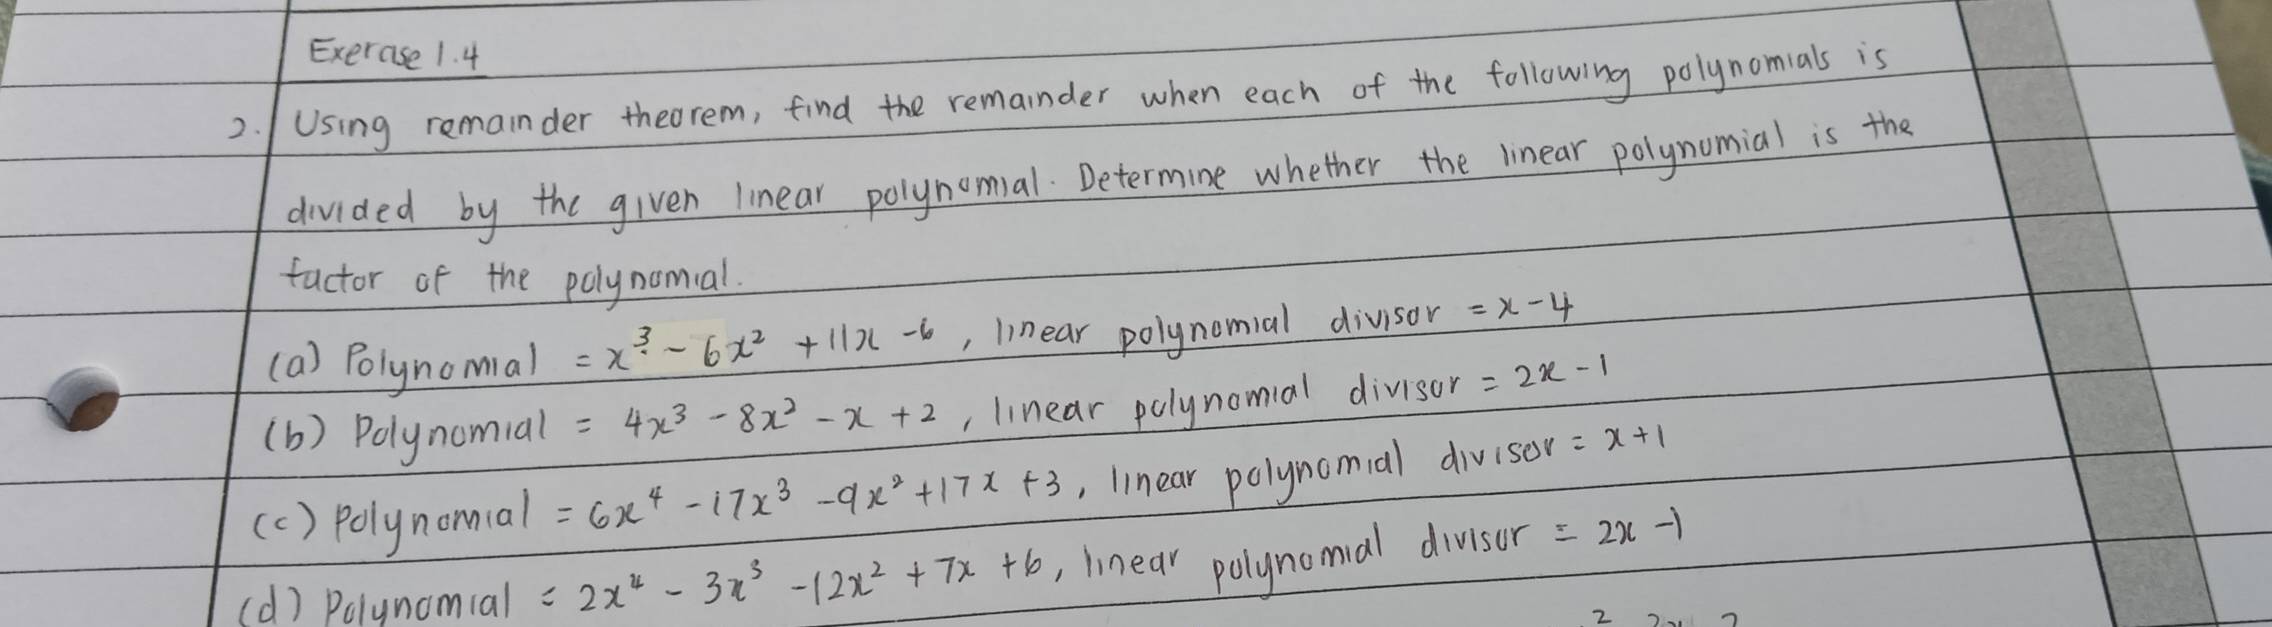 Exercise 1.4
2. Using remainder theorem, find the remainder when each of the following polynomials is
divided by the given linear polynomial. Determine whether the linear polynomial is the
factor of the polynomial.
(a) Polynomial = x³ - 6x² + 11x - 6, linear polynomial divisor = x - 4
(b) Polynomial = 4x³ - 8x² - x + 2, linear polynomial divisor = 2x - 1
(c) Polynomial = 6x⁴ - 17x³ - 9x² + 17x + 3, linear polynomial divisor = x + 1
(d) Polynomial = 2x⁴ - 3x³ - 12x² + 7x + 6, linear polynomial divisor = 2x - 1